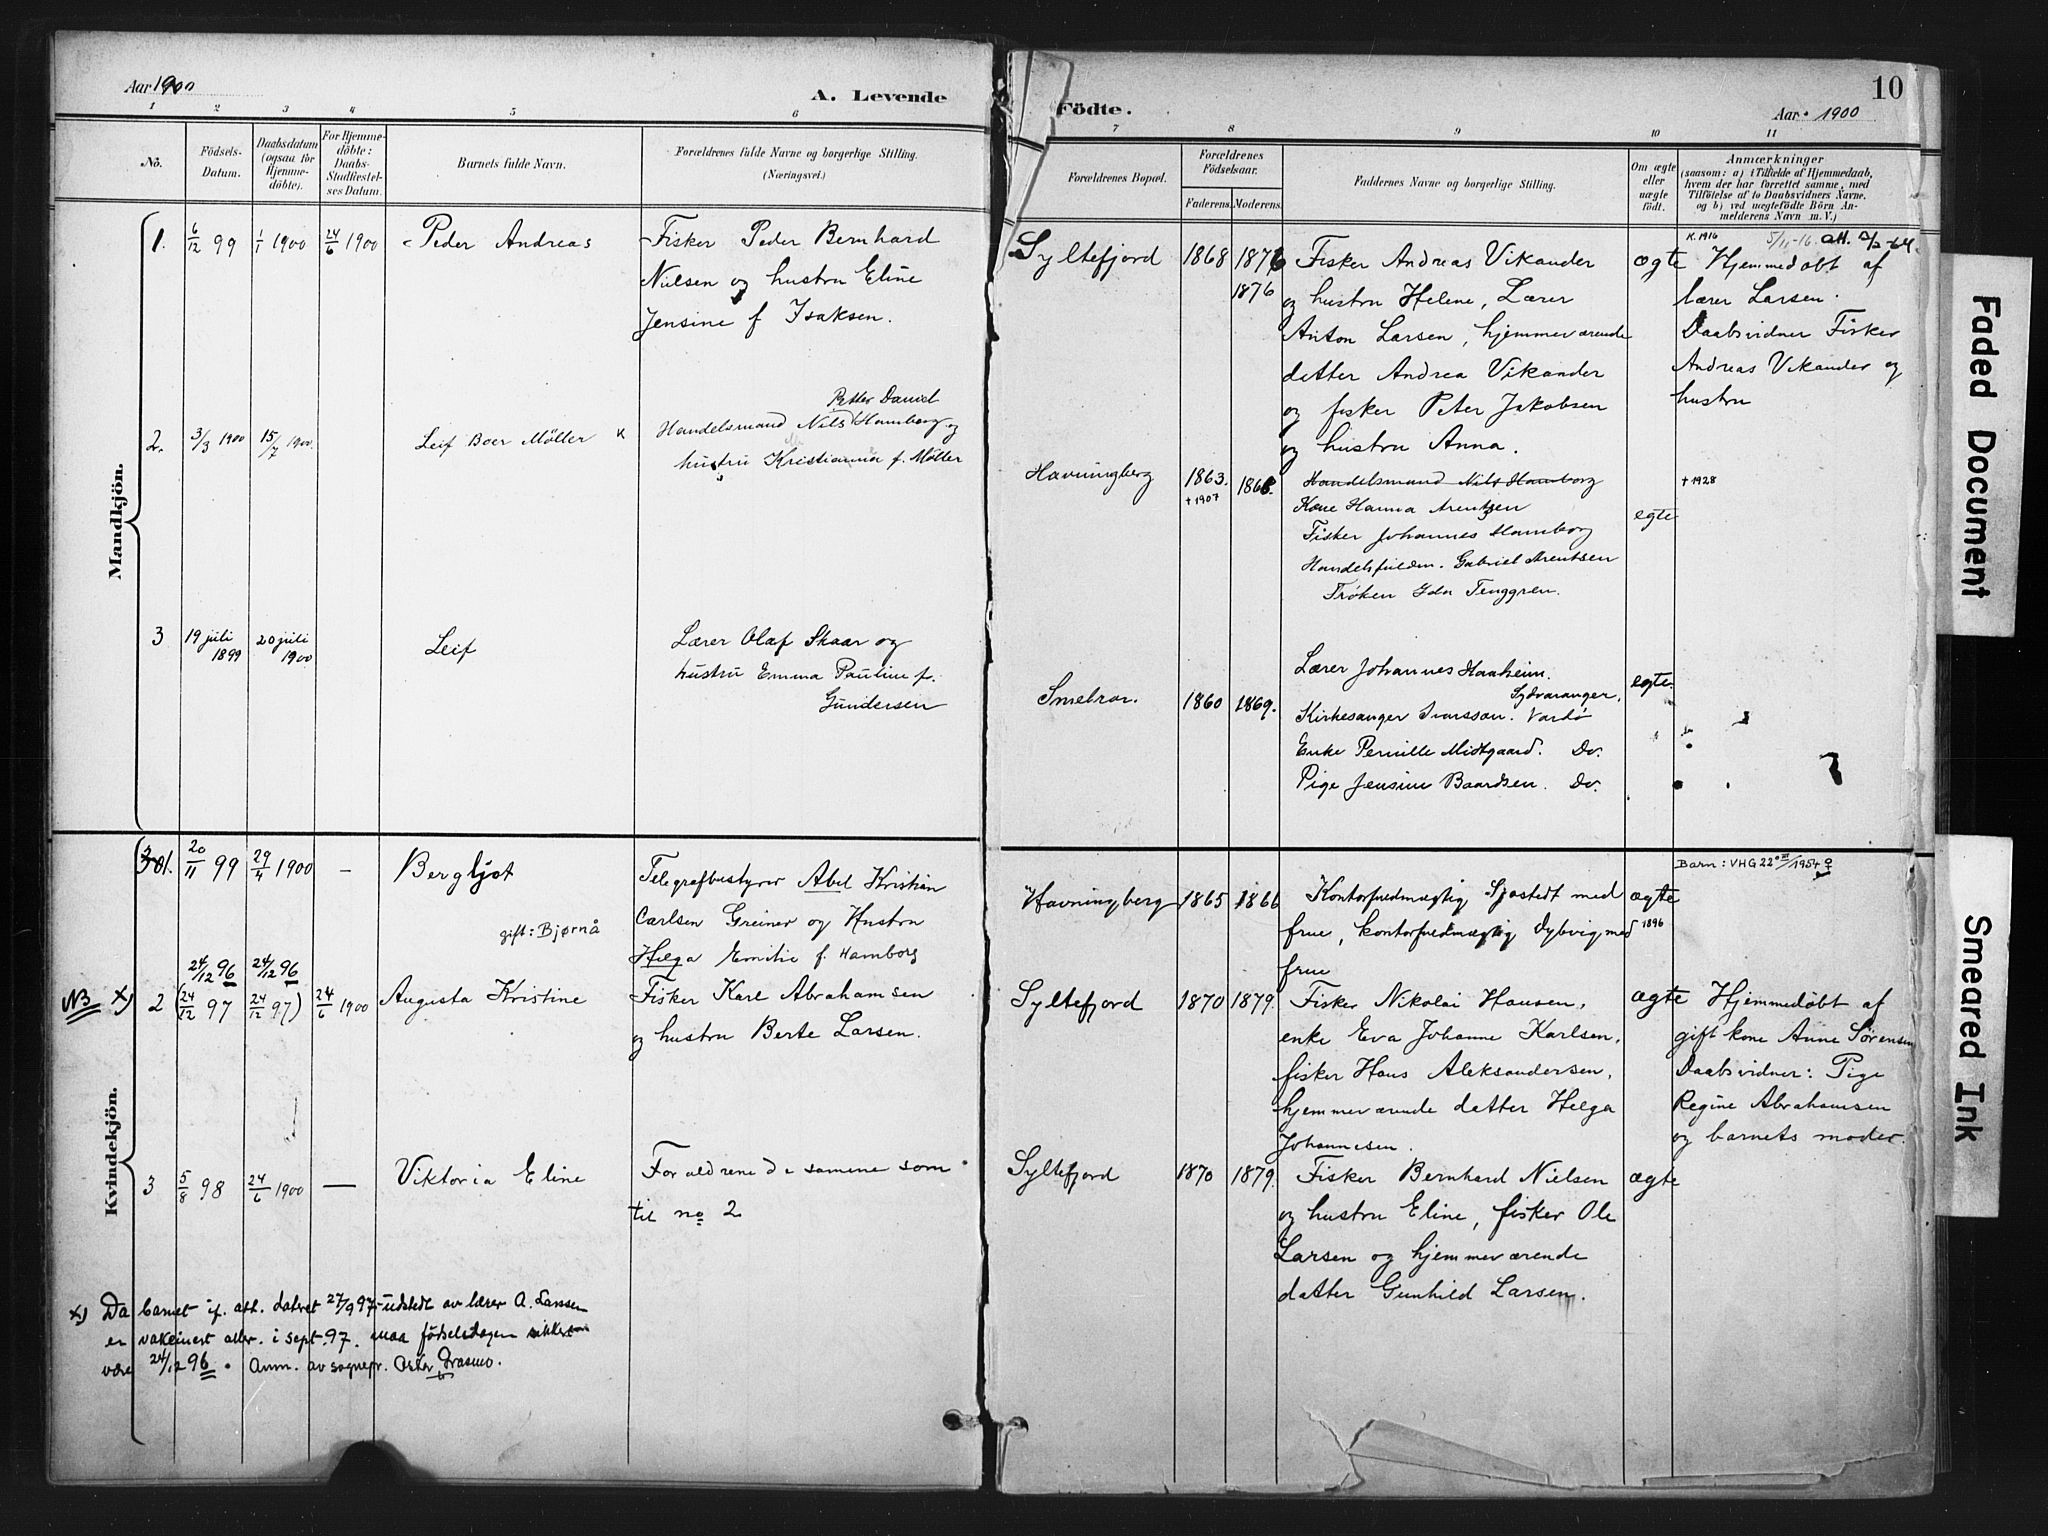 Aar 1900
A. Levende
Födte.
Aar 1900
10
1 2 3 4 5 6 7 8 9 10 11
No.
Födsels-
Datum.
Daabsdatum
(ogsaa for
Hjemme-
döbte).
For Hjemme-
döbte:
Daabs-
Stadfæstel-
ses Datum.
Barnets fulde Navn.
Forældrenes fulde Navne og borgerlige Stilling.
(Næringsvei.)
Forældrenes Bopæl.
Forældrenes
Födselsaar.
Faderens. Moderens.
Faddernes Navne og borgerlige Stilling.
Om ægte
eller
uægte
födt.
Anmærkninger
(saasom: a) i Tilfælde af Hjemmedaab,
hvem der har forrettet samme, med
Tilföielse af to Daabsvidners Navne.
og b) ved uægtefödte Börn An-
melderens Navn m. V.)
Mandkjön.
1. 6/12 99 1/1 1900 24/6 1900 Peder Andreas
Fisker Peder Bernhard
Nielsen og hustru Eline
Jensine f Isaksen.
Syltefjord 1868 1876
1876
Fisker Andreas Vikander
og hustru Helene, Lærer
Anton Larsen, hjemmeværende
datter Andrea Vikander
og fisker Peter Jakobsen
og hustru Anna.
ægte
K. 1916 5/11-16. att.
Hjemmedøbt af
lærer Larsen.
Daabsvidner Fisker
Andreas Vikander og
hustru
2. 3/3 1900 15/7 1900. Leif Boer Møller x
Petter Daniel
Handelsmand Nils Hamborg og
hustru Kristianna f. Møller
Havningberg 1863. 1868.
† 1907
Handelsmand Nils Hamborg
Kone Hanna Arentzen
Fisker Johannes Hamborg
Handelsfuldm. Gabriel Arentsen
Frøken Ida Tenggren.
egte
† 1928
3 19 juli 1899 20 juli 1900 Leif
Lærer Olaf Skaar og
hustru Emma Pauline f.
Gundersen
Smelror. 1860 1869.
Lærer Johannes Haaheim.
Sydvaranger.
Kirkesanger Ivarsson. Vardø
Enke Pernille Midtgaard. Do.
Pige Jensine Baardsen. Do.
egte
Kvindekjön.
1. 20/11 99 29/4 1900 — Bergljot
gift: Bjørnå
Telegrafbestyrer Abel Kristian
Carlsen Greiner og Hustru
Helga Emilie f. Hamborg
Havningberg 1865 1866
Kontorfuldmægtig Sjøstedt med
frue, kontorfuldmægtig Dybvig med
frue
ægte
1896
Barn: VHG 22 III/1954
24/12 96 24/12 96
NB x) 2 (24/12 97 24/12 97) 24/6 1900 Augusta Kristine
Fisker Karl Abrahamsen
og hustru Berte Larsen.
Syltefjord 1870 1879.
Fisker Nikolai Hansen,
enke Eva Johanne Karlsen,
fisker Hans Aleksandersen,
hjemmeværende datter Helga
Johannesen.
ægte
Hjemmedøbt af
gift kone Anne Sørensen
Daabsvidner: Pige
Regine Abrahamsen
og barnets moder.
3 5/8 98 24/6 1900 — Viktoria Eline
Forældrene de samme som
til no 2
Syltefjord 1870 1879.
Fisker Bernhard Nielsen
og hustru Eline, fisker Ole
Larsen og hjemmeværende
datter Gunhild Larsen.
ægte
x) Da barnet if. att. datret 27/9 97 udstedt av lærer A. Larssen
er vakcinert aller. i sept. 97. maa fødselsdagen sikkert
være 24/12 96. Anm. av sognepr.
Faded Document
Smeared Ink